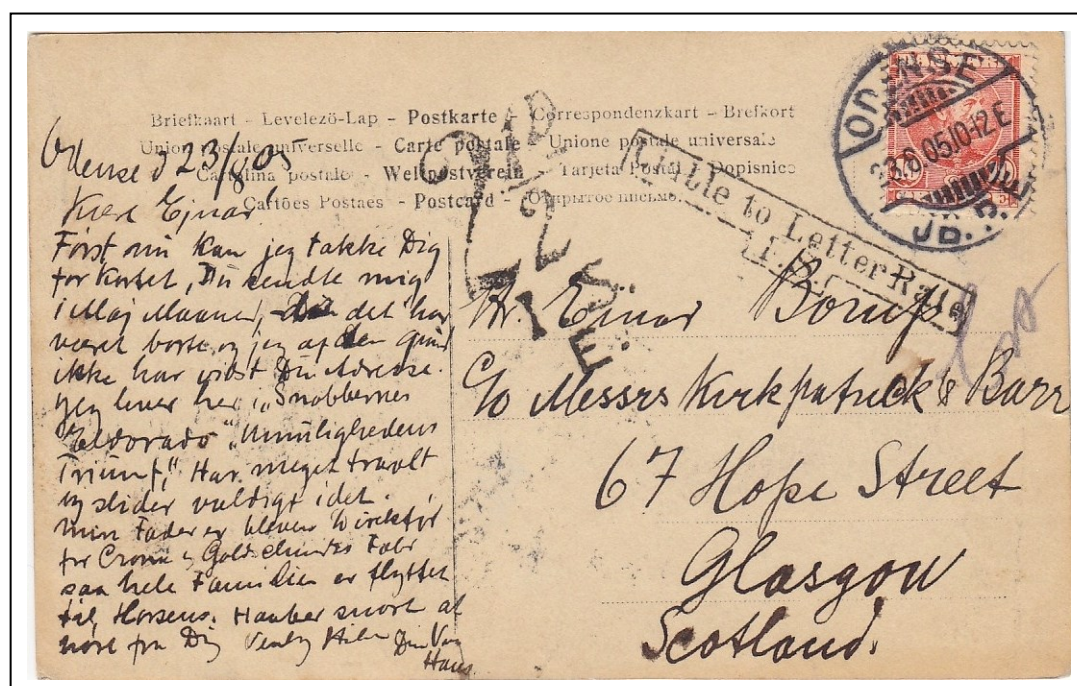 Briefkaart - Levelező-Lap - Postkarte - Correspondenzkart - Brefkort
Union postale universelle - Carte postale - Unione postale universale
Cartolina postale - Weltpostverein - Tarjeta Postal - Dopisnice
Cartões Postaes - Postcard - Открытое письмо.
ODENSE
23.8.05 10-12 E
JB.P.
Liable to Letter Rate
I.S.C.
Odense d 23/8 05
Kære Ejnar
Först nu kan jeg takke Dig
for Kortet, Du sendte mig
i Maj Maaned, det har
været borte, og jeg af den grund
ikke har vidst Din Adresse.
Jeg lever her i "Snobbernes
Eldorado" "Umulighedens
Triumf," Har meget travlt
og slider vældigt i det.
Min Fader er bleven Direktör
for Crome & Goldschmidts Fabr
saa hele Familien er flyttet
til Horsens. Haaber snart at
höre fra Dig Venlig Hilsen Din Ven
Hans.
Hr. Ejnar Borup
C/o Messrs Kirkpatrick & Barr
67 Hope Street
Glasgow
Scotland.